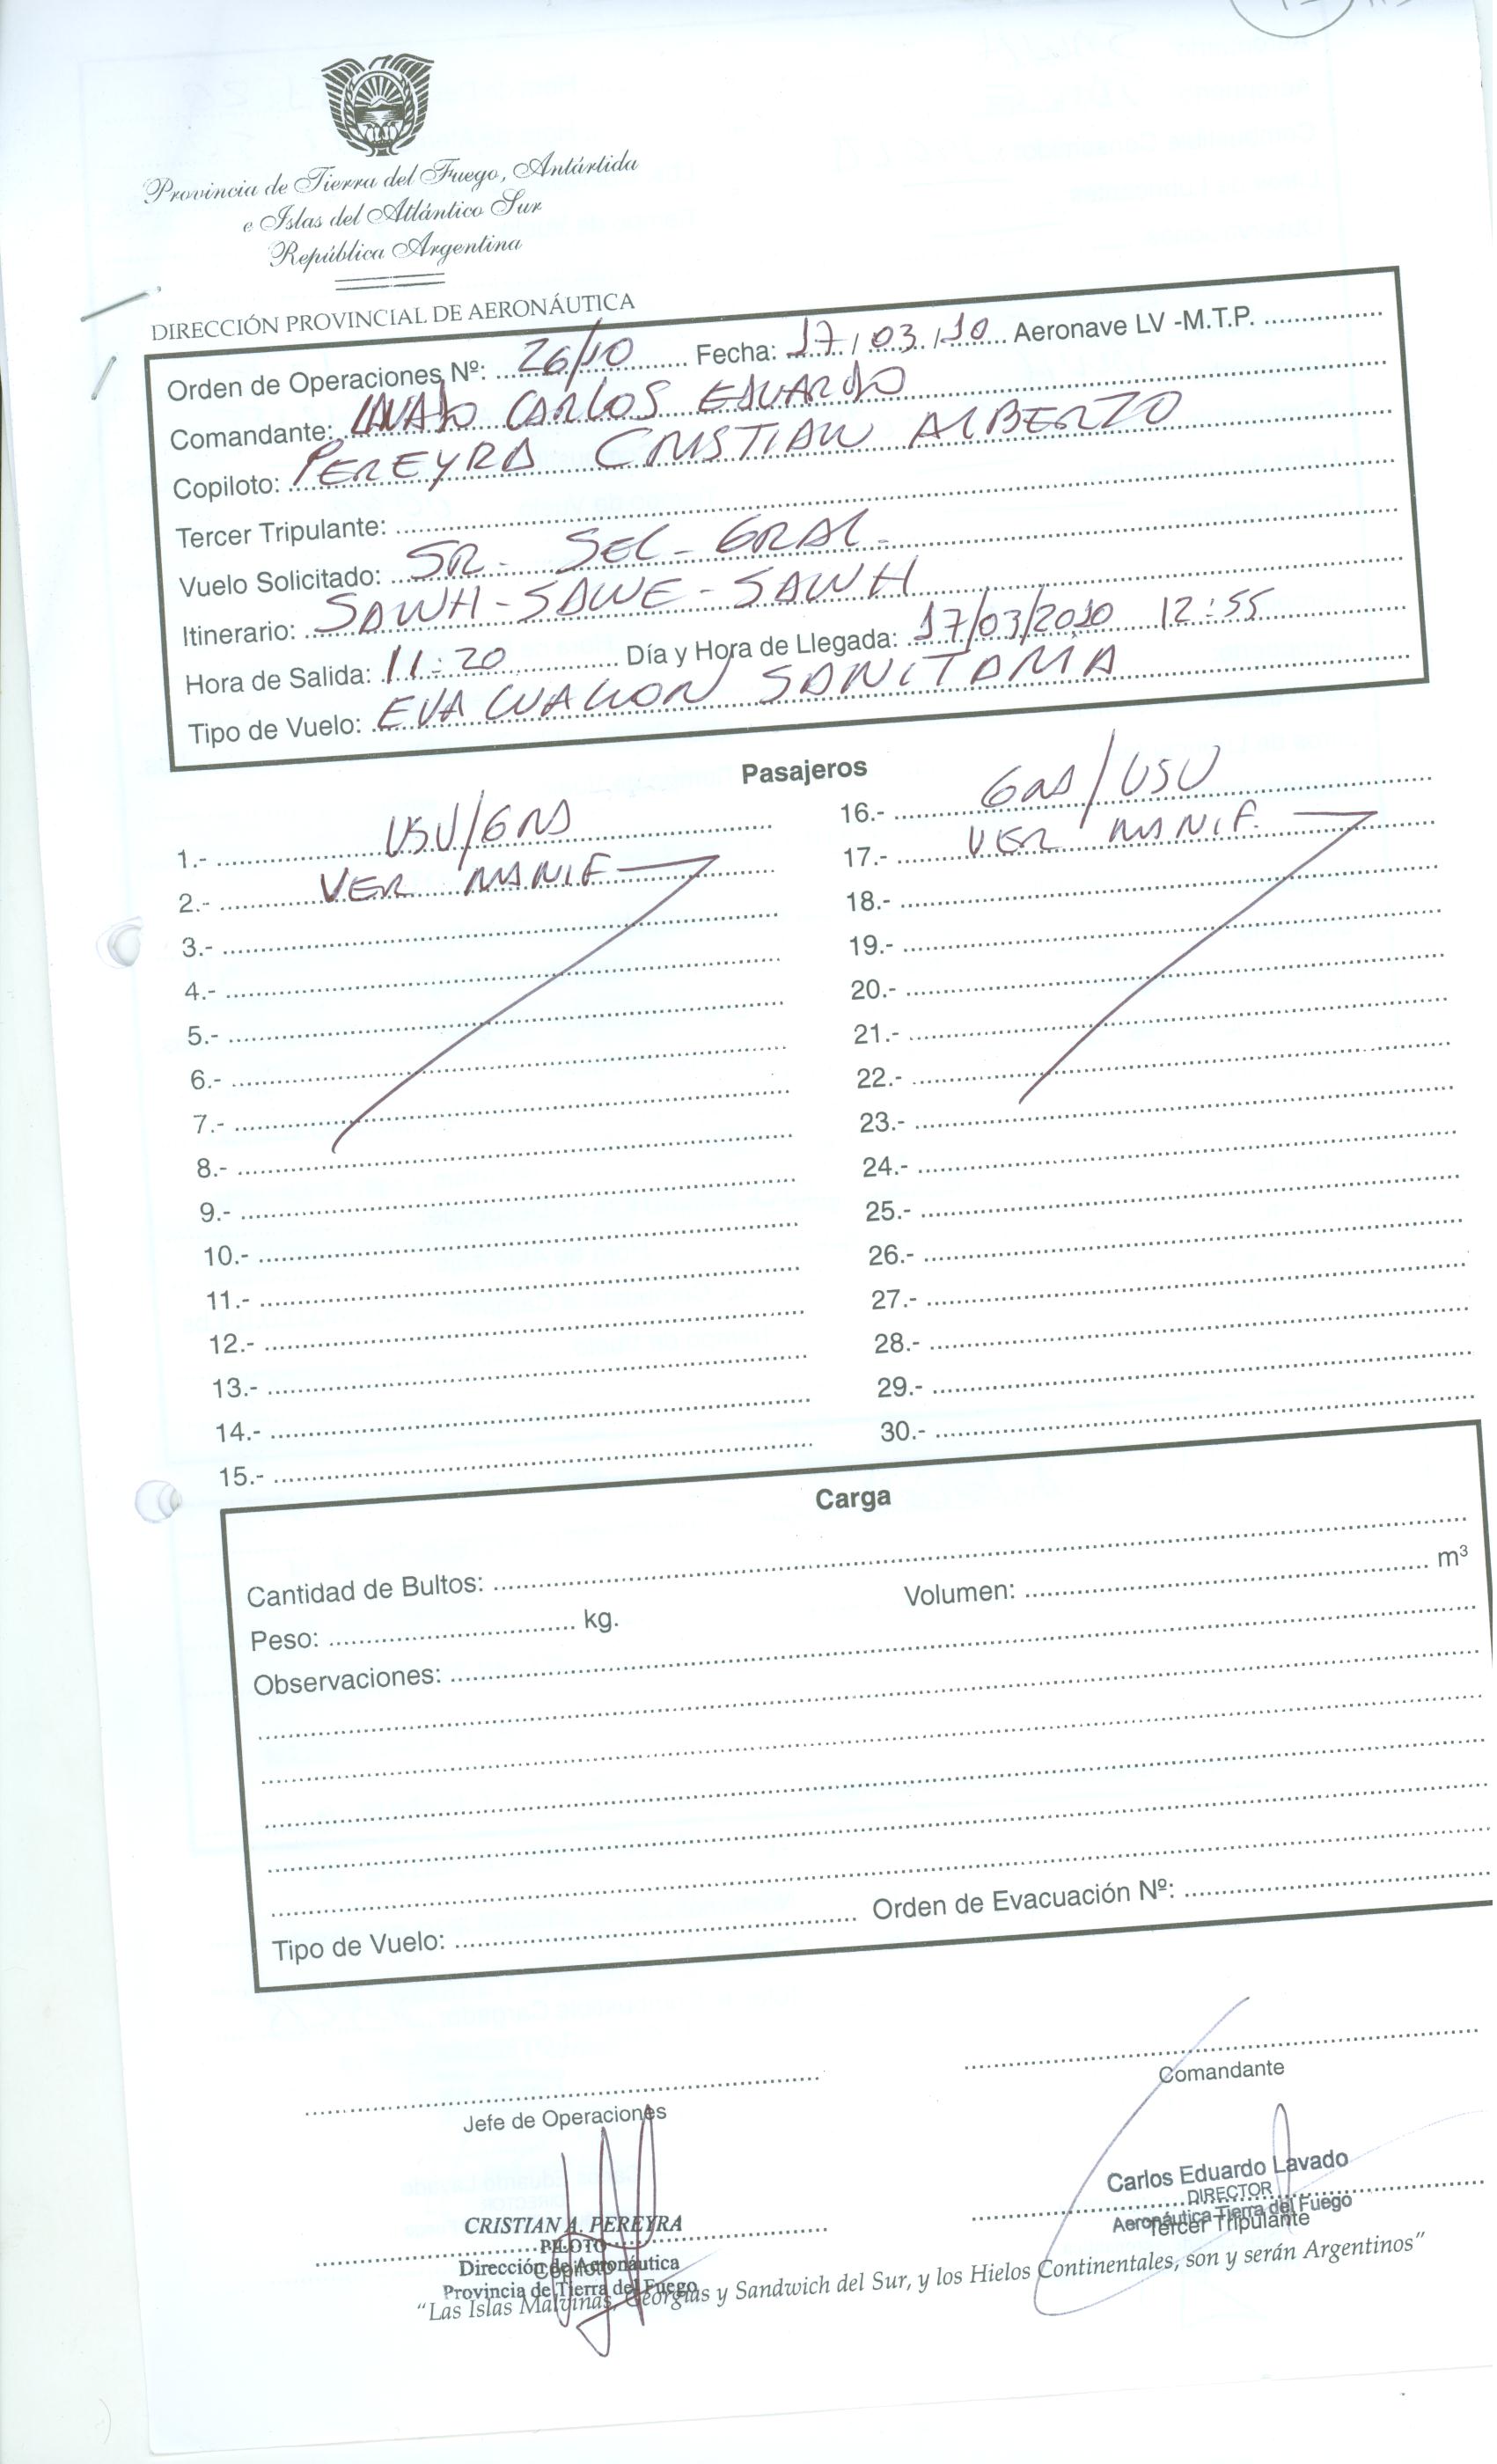 Provincia de Tierra del Fuego, Antártida
e Islas del Atlántico Sur
República Argentina
DIRECCIÓN PROVINCIAL DE AERONÁUTICA
Orden de Operaciones Nº: 26/10 Fecha: 17/03/10 Aeronave LV -M.T.P.
Comandante: LAVADO CARLOS EDUARDO
Copiloto: PEREYRA CRISTIAN ALBERTO
Tercer Tripulante:
Vuelo Solicitado: SR. SEC. GRAL.
Itinerario: SAWH-SAWE-SAWH
Hora de Salida: 11:20 Día y Hora de Llegada: 17/03/2010 12:55
Tipo de Vuelo: EVACUACION SANITARIA
Pasajeros
1.- USU/GRA
2.- VER MANIF
3.-
4.-
5.-
6.-
7.-
8.-
9.-
10.-
11.-
12.-
13.-
14.-
15.-
16.- GRA/USU
17.- VER MANIF.
18.-
19.-
20.-
21.-
22.-
23.-
24.-
25.-
26.-
27.-
28.-
29.-
30.-
Carga
Cantidad de Bultos:
Peso: kg. Volumen: m³
Observaciones:
Tipo de Vuelo: Orden de Evacuación Nº:
Jefe de Operaciones
Comandante
CRISTIAN A. PEREYRA
PILOTO
Dirección de Aeronáutica
Copiloto
Provincia de Tierra del Fuego
Carlos Eduardo Lavado
DIRECTOR
Aeronáutica Tierra del Fuego
Tercer Tripulante
"Las Islas Malvinas, Georgias y Sandwich del Sur, y los Hielos Continentales, son y serán Argentinos"